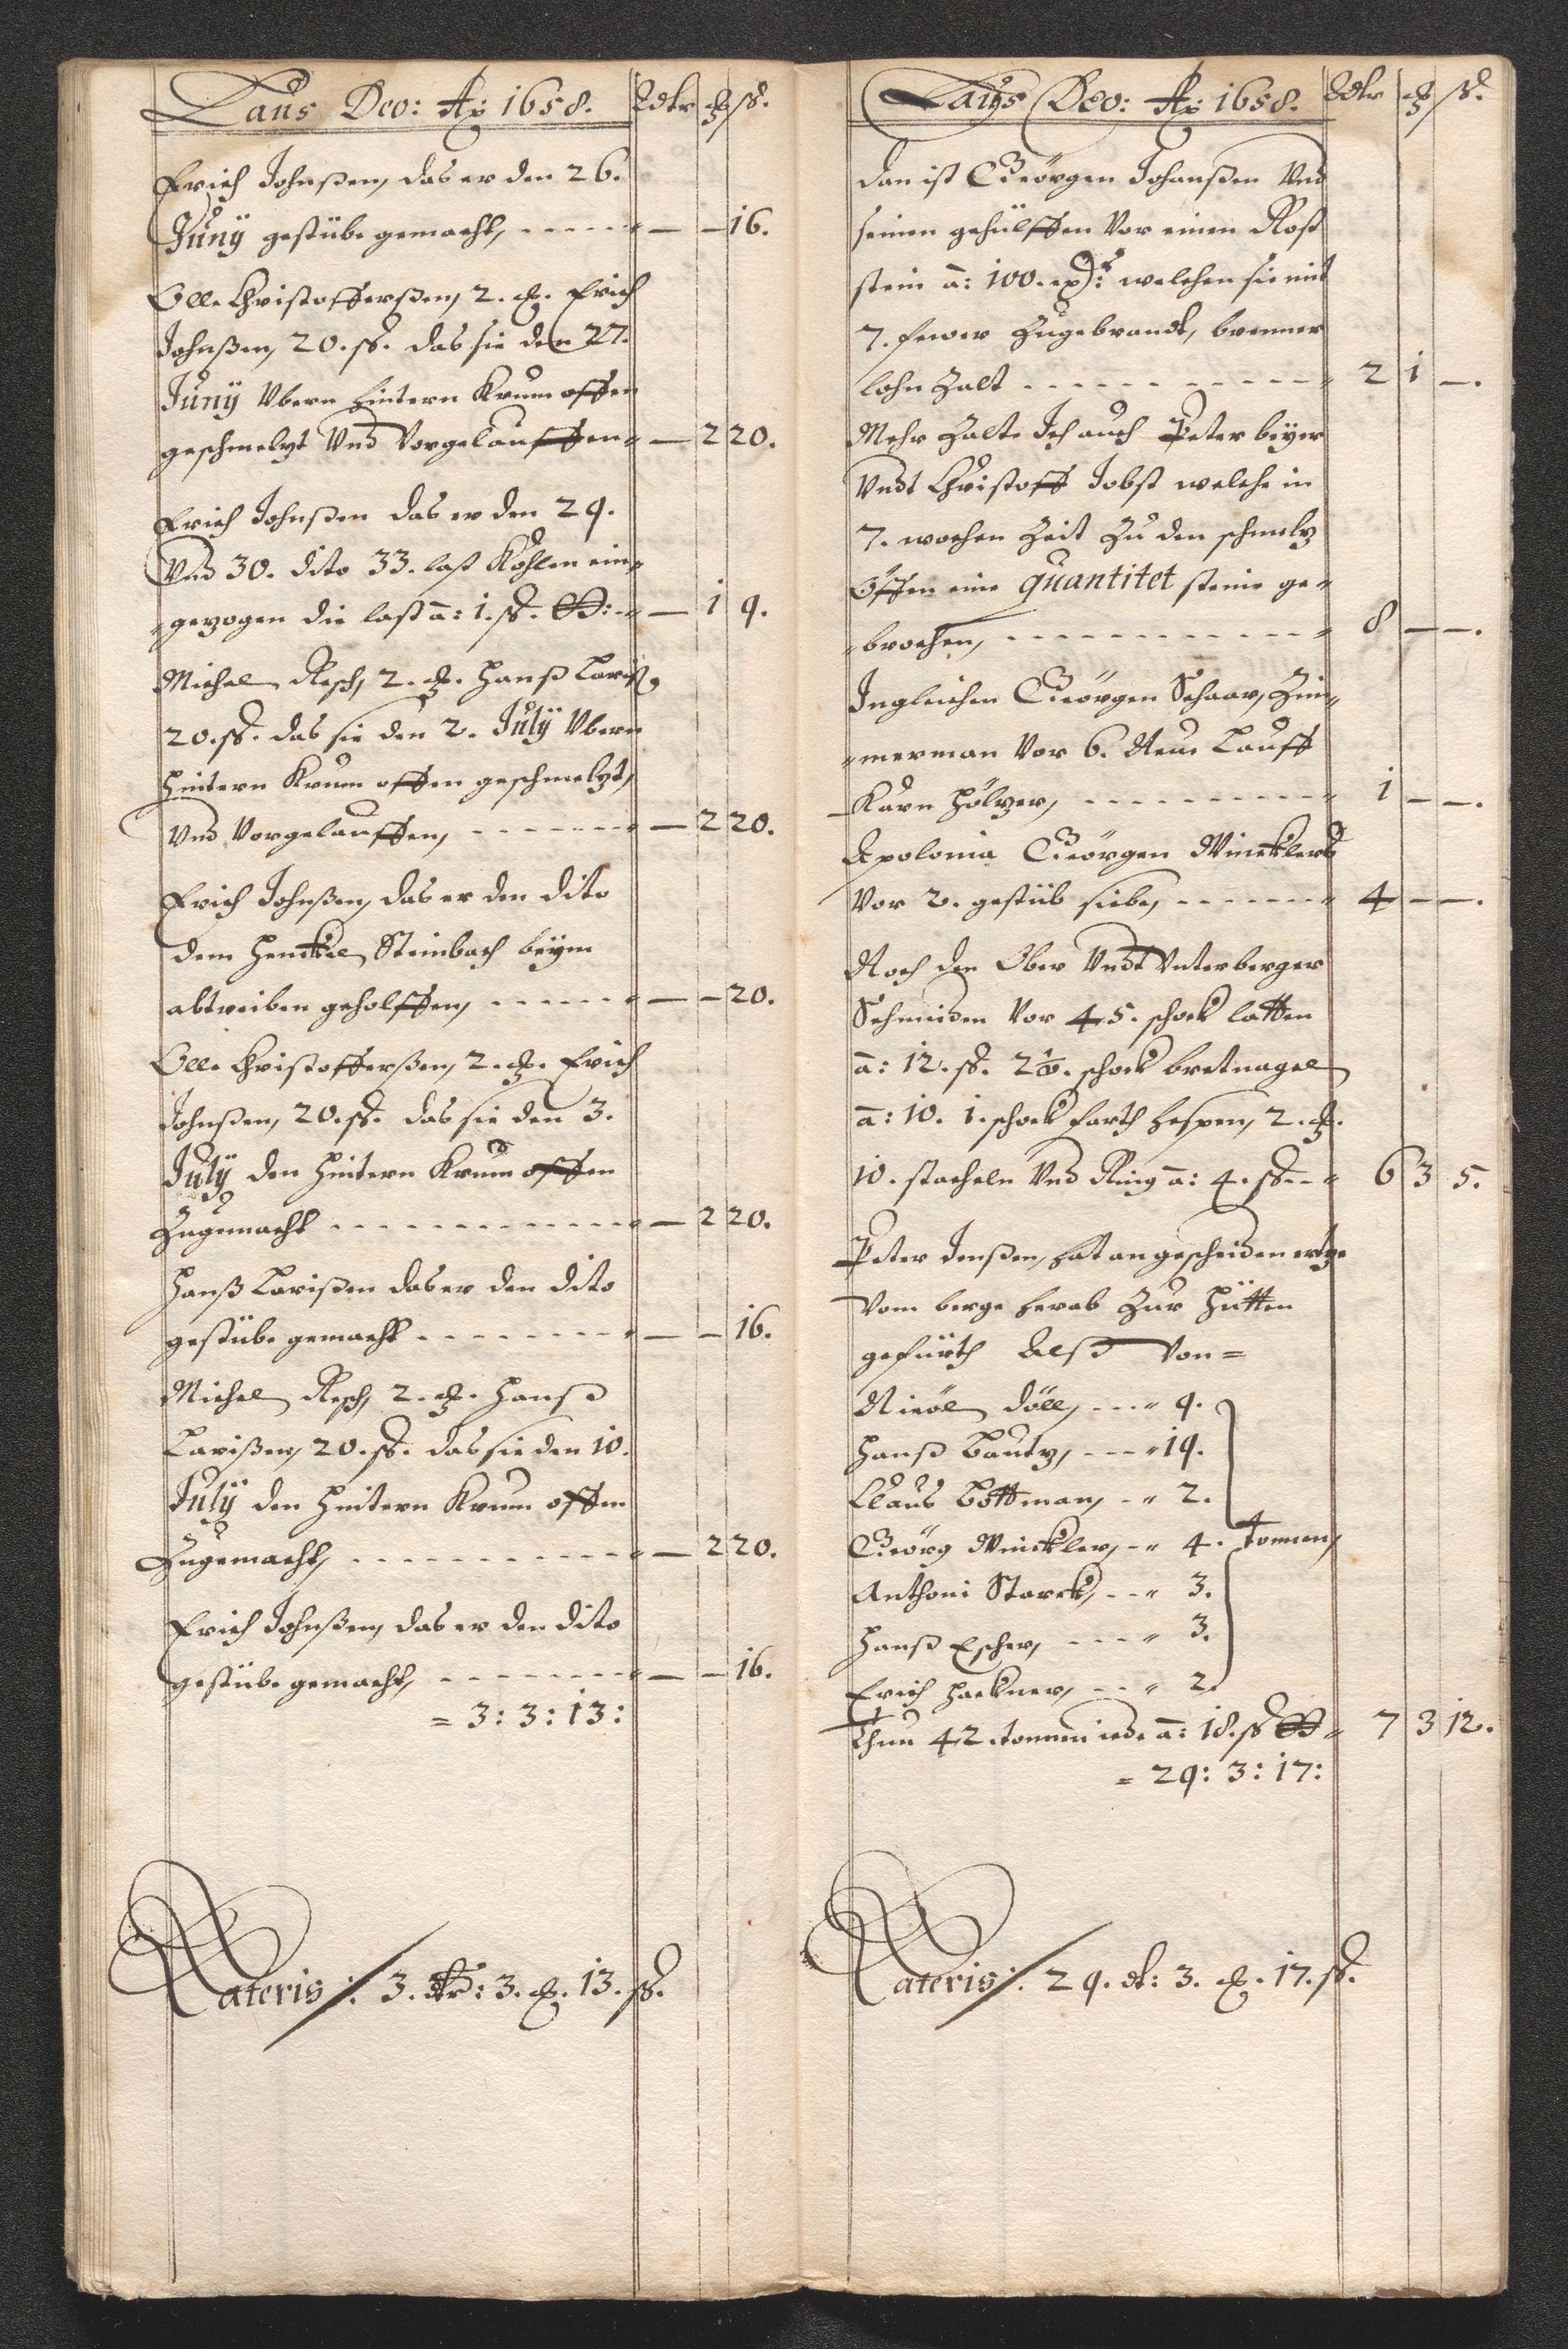 Laus Deo: Aõ: 1658. Rdtr ꝗ ß.
Erich Johnßen, das er den 26.
Juny gestübe gemacht, - - - - - — — 16.
Olle Christofferßen, 2. ꝗ. Erich
Johnßen, 20. ß. das sie den 27.
Juny Vbern hintern Krum offen
geschmelzt Vnd Vorgelauffen — 2 20.
Erich Johnßen das er den 29.
Vnd 30. dito 33. last Kohlen ein-
gezogen die last ā: 1. ß. - — 1 9.
Michel Resch, 2. ꝗ. Hanß Lariß,
20. ß. das sie den 2. July Vbern
hintern Krum offen geschmelzt,
Vnd Vorgelauffen, - - - - - - — 2 20.
Erich Johnßen, das er den dito
dem Henckel Steinbach beÿm
abtreiben geholffen, - - - - - — — 20.
Olle Christofferßen, 2. ꝗ. Erich
Johnßen, 20. ß. das sie den 3.
July den hintern Krum offen
Zugemacht - - - - - - - - - — 2 20.
Hanß Larißen das er den dito
gestübe gemacht - - - - - - - — — 16.
Michel Resch, 2. ꝗ. Hanß
Larißen, 20. ß. das sie den 10.
July den hintern Krum offen
Zugemacht, - - - - - - - - - — 2 20.
Erich Johnßen, das er den dito
gestübe gemacht, - - - - - - - — — 16.
= 3: 3: 13:
Lateris /: 3. dtr: 3. ꝗ. 13. ß.
Laus Deo: Aõ: 1658. Rdtr ꝗ ß.
Dan ist Geörgen Johanßen Vnd
seinen gehülffen Vor einen Rost
stein ā: 100. welchen sie mit
7. fewer Zugebrandt, brenner
lohn Zalt - - - - - - - - - - 2 1 —.
Mehr Zalte Ich auch Peter beÿer
Vndt Christoff Jobst welche in
7. wochen Zeit Zu den schmelz
Öffen eine quantitet steine ge-
-brochen, - - - - - - - - - - - 8 — —.
Ingleichen Geörgen Schaar, Zim-
-merman Vor 6. Newe Lauff
Karn hölzer, - - - - - - - - - 1 — —.
Apolonia Geörgen Wincklers
Vor 2. gestüb siebe, - - - - - - 4 — —.
Noch den Ober Vndt Vnterberger
Schmiden Vor 45. schock latten
ā: 12. ß. 2½. schock bretnagel
ā: 10. 1. schock farth hespen, 2. ꝗ.
10. stacheln Vnd Ring ā: 4. ß - - 6 3 5.
Peter Jenßen, hat an gescheiden ertze
Vom berge herab Zur Hütten
geführth Alß Von =
Nicöl Döll, - - - 9.
Hanß Bautz, - - - 19.
Claus Bottman, - - 2.
Geörg Winckler, - - 4. tonnen,
Anthoni Starck, - - 3.
Hanß Escher, - - - 3.
Erich Hackner, - - 2.
Thun 42. tonnen iede ā: 18. ß 7 3 12.
= 29: 3: 17:
Lateris /: 29. dt: 3. ꝗ. 17. ß.